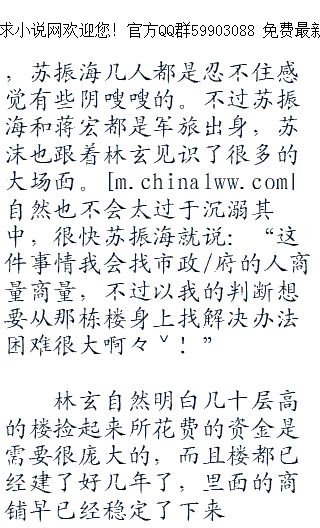 求小说网欢迎您！官方QQ群59903088 免费最新
，苏振海几人都是忍不住感
觉有些阴嗖嗖的。不过苏振
海和蒋宏都是军旅出身，苏
沫也跟着林玄见识了很多的
大场面。[m.china1ww.com|
自然也不会太过于沉溺其
中，很快苏振海就说：“这
件事情我会找市政/府的人商
量商量，不过以我的判断想
要从那栋楼身上找解决办法
困难很大啊々ˇ！”
林玄自然明白几十层高
的楼捡起来所花费的资金是
需要很庞大的，而且楼都已
经建了好几年了，里面的商
铺早已经稳定了下来